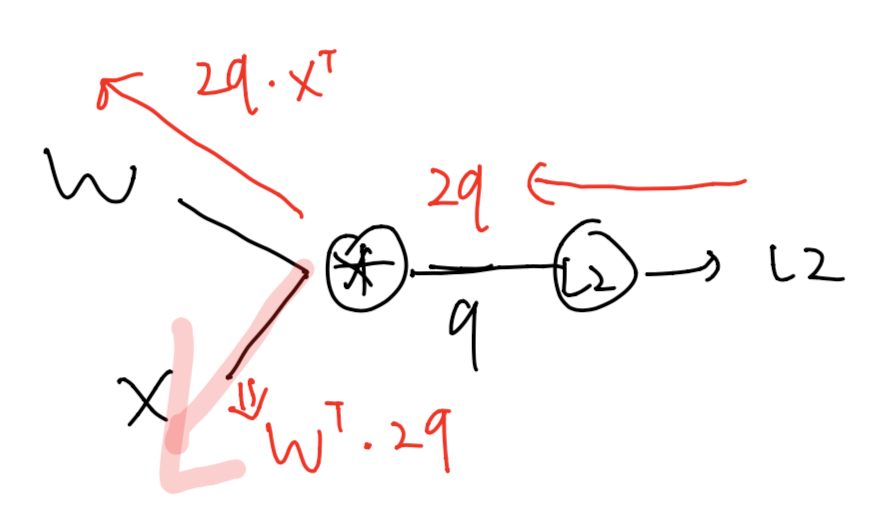 2q · X^T
W
2q
*
L2
L2
q
X
W^T · 2q